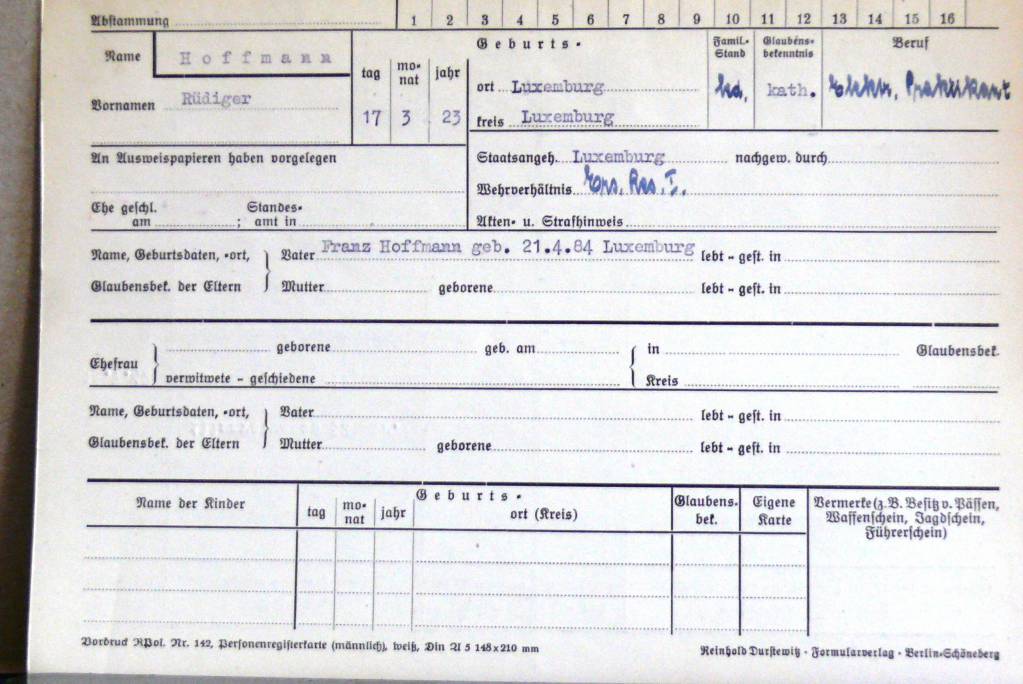 Abstammung 1 2 3 4 5 6 7 8 9 10 11 12 13 14 15 16
Name Hoffmann
Vornamen Rüdiger
Geburts-
tag monat jahr
17 3 23
ort Luxemburg
kreis Luxemburg
Famil.-Stand
led.
Glaubensbekenntnis
kath.
Beruf
Elektr. Praktikant
An Ausweispapieren haben vorgelegen
Staatsangeh. Luxemburg nachgew. durch
Wehrverhältnis Ers. Res. I.
Ehe geschl. Standes-
am ; amt in
Akten- u. Strafhinweis
Name, Geburtsdaten, -ort, Vater Franz Hoffmann geb. 21.4.84 Luxemburg lebt - gest. in
Glaubensbek. der Eltern Mutter geborene lebt - gest. in
geborene geb. am in Glaubensbek.
Ehefrau
verwitwete - geschiedene Kreis
Name, Geburtsdaten, -ort, Vater lebt - gest. in
Glaubensbek. der Eltern Mutter geborene lebt - gest. in
Name der Kinder
Geburts-
tag monat jahr ort (Kreis)
Glaubensbek.
Eigene Karte
Vermerke (z. B. Besitz v. Pässen,
Waffenschein, Jagdschein,
Führerschein)
Vordruck RPol. Nr. 142, Personenregisterkarte (männlich), weiß, Din A 5 148 x 210 mm
Reinhold Durstewitz - Formularverlag - Berlin-Schöneberg